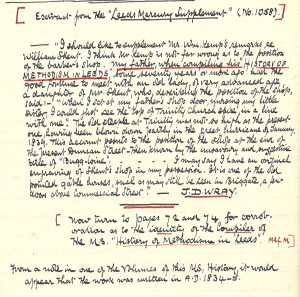 Extract from the "Leeds Mercury Supplement" (No. 1058).
"I should like to supplement Mr. Wm. Kemp's remarks re
William Hent. I think Mr. Kemp is not far wrong as to the position
of the barber's shop. My father, when compiling his HISTORY OF
METHODISM IN LEEDS some seventy years or more ago had the
good fortune to meet with an old lady, of very advanced age
a daughter of Mr. Hent, who, describing the position of the shop,
said:- "When I sat at my father's shop door nursing my little
sister I could just see the top of Trinity Church spire, in a line
with me." The old steeple at Trinity was not so high as the present
one, having been blown down partly in the great hurricane of January,
1839. This account points to the position of the shop at the end of
the present Duncan Street - then known by the unsavoury and suggestive
title of "Bugg
I may say I have an original
engraving of Hent's shop in my possession. It is one of the old
pointed gable houses, such as may still be seen in Briggate, a few
doors above Commercial Street." J. D. WRAY.
Now turn to pages 72 and 74, for corrob-
oration as to the identity of the Compiler of
the M.S. "History of Methodism in Leeds".
From a note in one of the Volumes of this MS. History, it would
appear that the work was written in A.D. 1834-5.